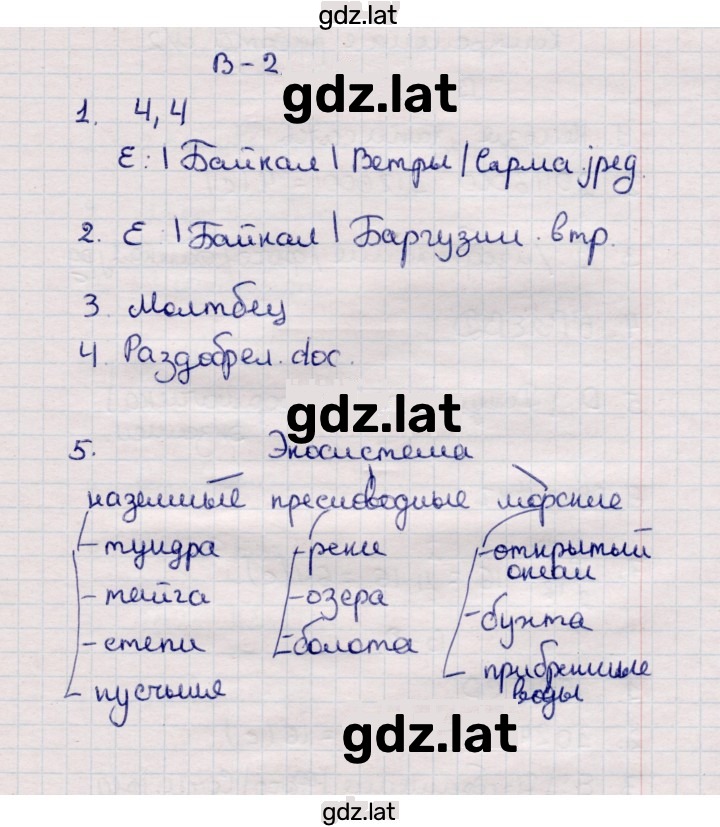 gdz.lat
В-2
gdz.lat
1. 4, 4
Е:|Байкал|Ветры|Сарма.jpeg.
2. Е|Байкал|Баргузин.втр.
3. Молтбец
4. Раздобрел.doc.
gdz.lat
5. Экосистема
наземные пресноводные морские
- тундра - реки - открытый океан
- тайга - озера - бухта
- степи - болота - прибрежные воды
- пустыня
gdz.lat
gdz.lat